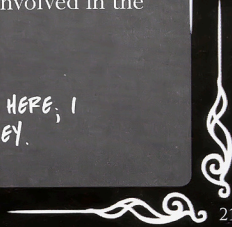 nvolved in the
HERE; I
EY.
21